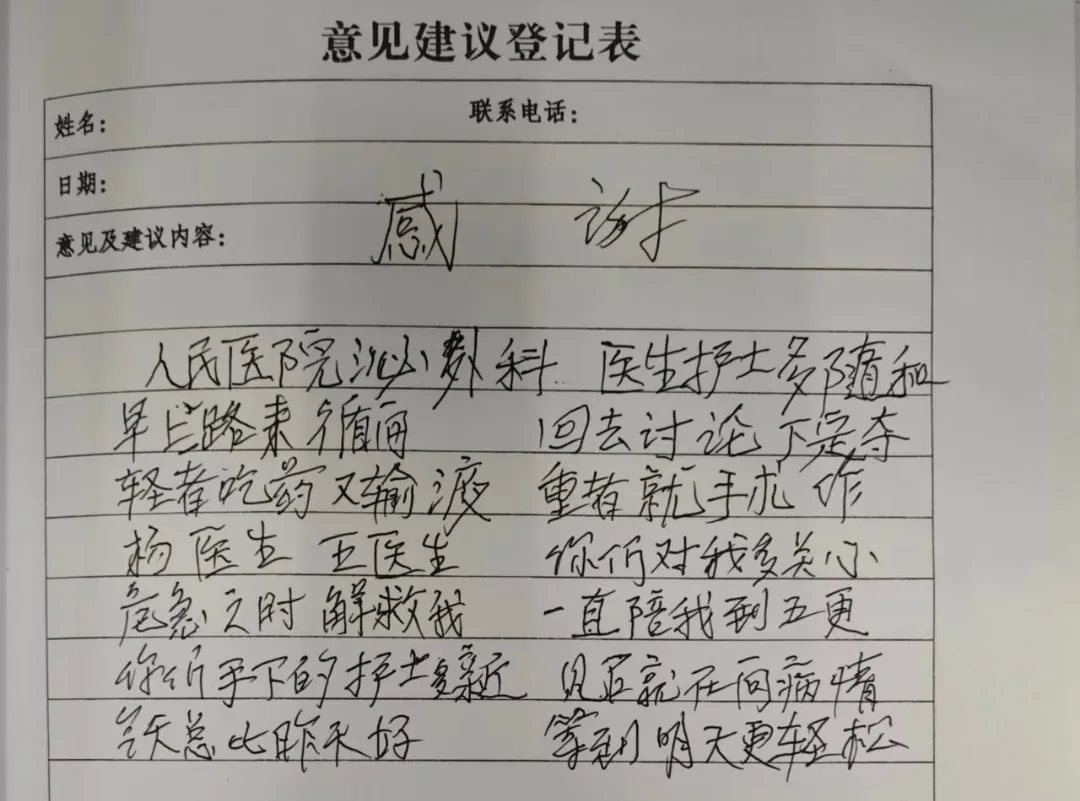 意见建议登记表
姓名： 联系电话：
日期：
感 谢
意见及建议内容：
人民医院泌外科 医生护士多随和
早上路来循问 回去讨论下定夺
轻者吃药又输液 重者就手术作
杨医生 王医生 你们对我多关心
危急之时解救我 一直陪我到五更
你们手下的护士多亲近 见面就在问病情
今天总比昨天好 等到明天更轻松